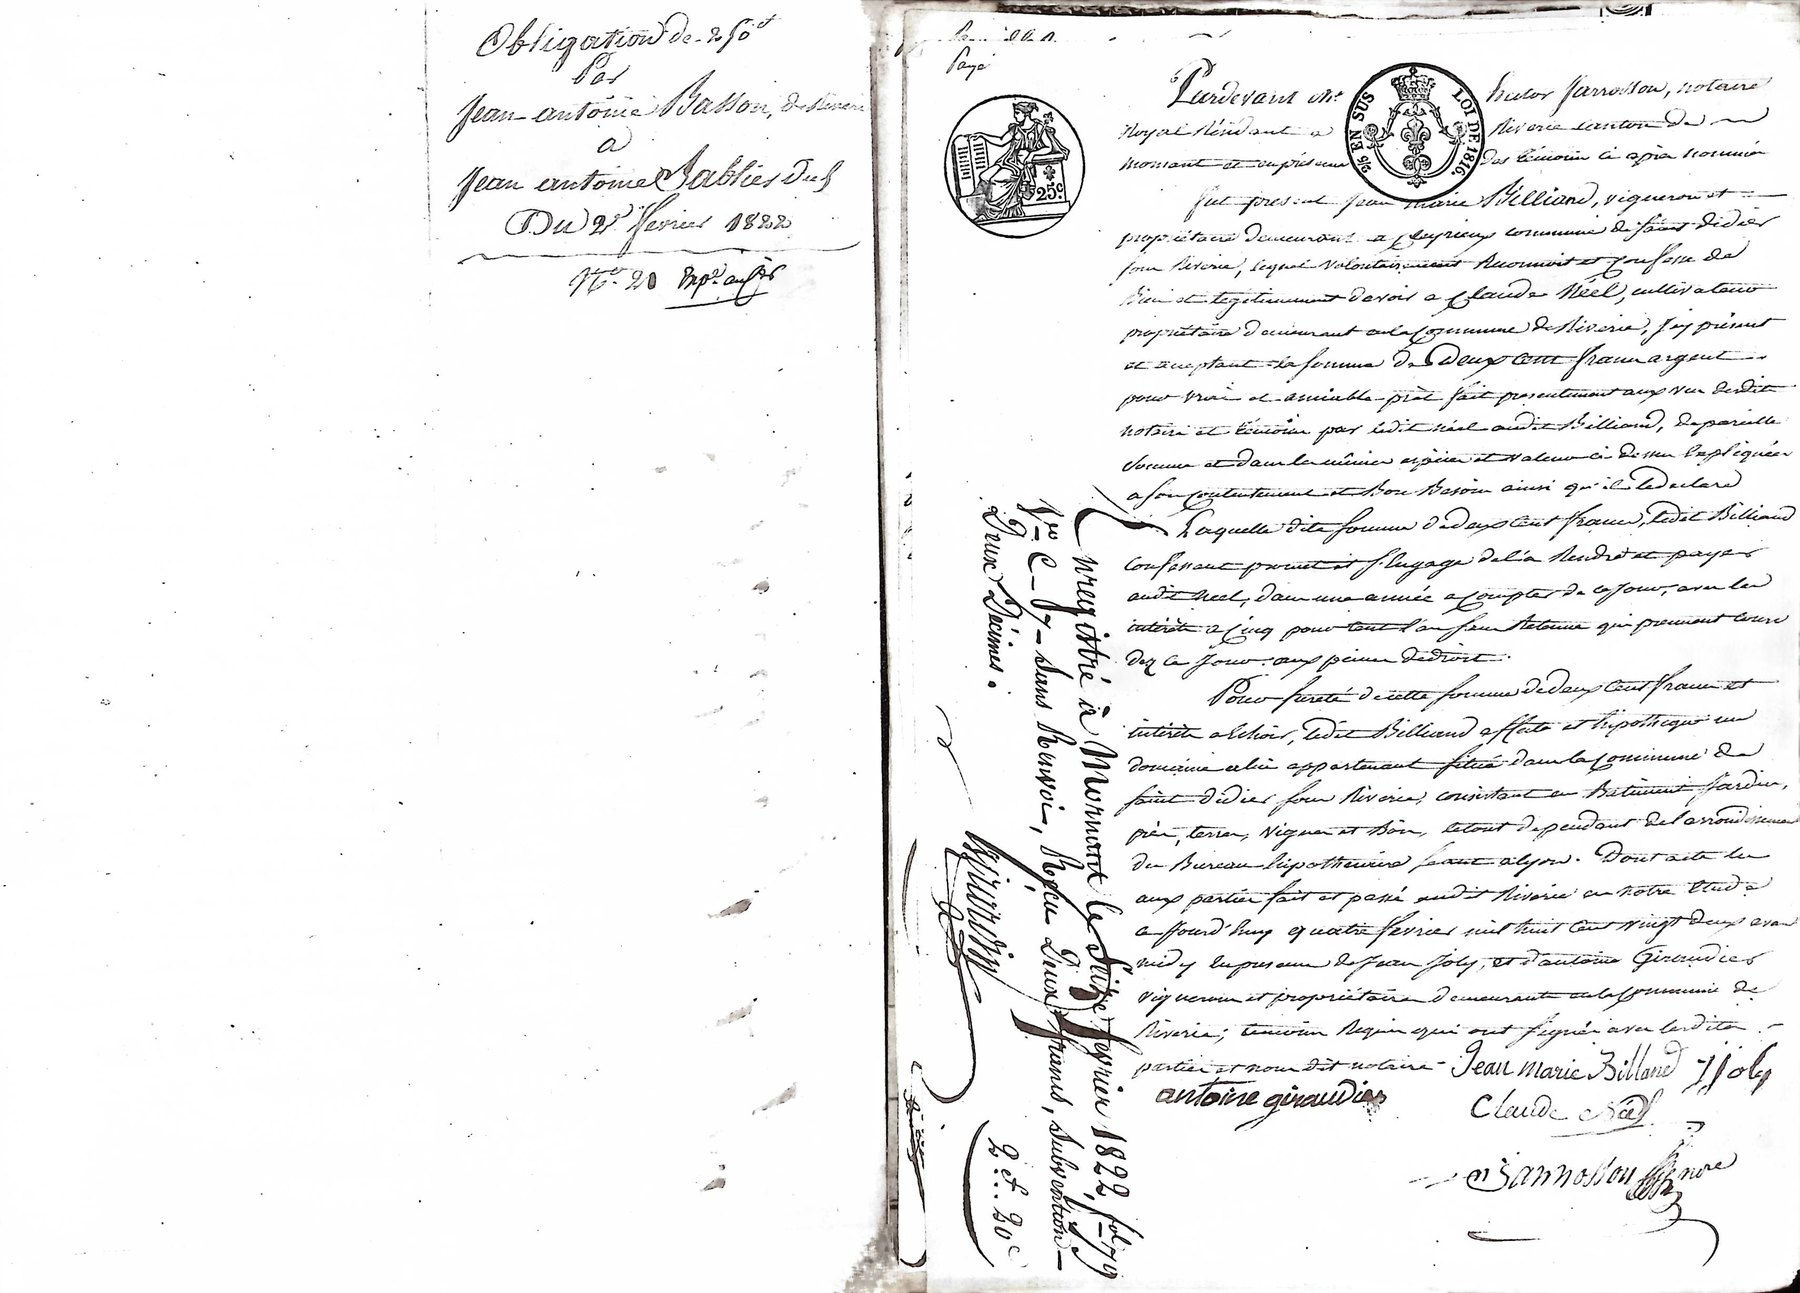 Obligation de 250 f
Par
Jean antoine Basson, de Riverie
a
Jean antoine Sablier dud
Du 2 février 1822
N° 20 Exp.
Payé
25 c
2/6 EN SUS LOI DE 1816.
Pardevant Me hector Jarrosson, notaire
Royal Résidant a Riverie canton de
mornant et en présence des témoins ci après nommés
fut présent Jean marie Billiand, vigneron et
propriétaire demeurant a commune de saint didier
sous Riverie, lequel volontairement Reconnoit et Confesse de
bien et légitimement devoir a Claude Néel, cultivateur
propriétaire demeurant en la Commune de Riverie, jcy présent
et acceptant la somme de deux Cent francs argent
pour vrai et amiable prèt fait présentement aux vue desdits
notaire et témoins par ledit néel audit Billiand, de pareille
somme et dans les mêmes espèces et valeur ci dessus Expliquée
a son Contentement et Bon Besoin ainsi qu'il le declare
Laquelle dite somme de deux Cent francs, ledit Billiand
confessant promet et s'engage de la Rendre et payer
audit Neel, dans une année a Compter de ce jour, avec les
intérêts a Cinq pour Cent l'an sans Retenue qui prennent cours
dez ce jour aux peines de droit.
Pour sureté de cette somme de deux Cent francs et
intérêts a Echoir, ledit Billiand affecte et hipotheque un
domaine a lui appartenant situé dans la Commune de
saint didier sous Riverie, consistant en Batiment, Jardin,
près, terres, vignes et Bois, le tout dépendant de l'arrondissement
du Bureau hipothécaire séant a lyon. Dont acte lu
aux parties fait et passé audit Riverie en notre Etude
a jourd'huy quatre février mil huit Cent vingt deux avant
midy En présence de Jean Joly, et d'antoine Giraudier
vignerons et propriétaires demeurants en la Commune de
Riverie; témoins Requis qui ont signés avec lesdites
parties et nous dit notaire
Jean marie Billand J Joly
antoine giraudier
Claude Néel
Jarrosson nre
Enregistré à Mornant le Seize fevrier 1822, fol 79
Vo C 7 - Sans Renvoi, Reçu Deux francs, Subvention
Deux Décimes.
2 f .. 20 c